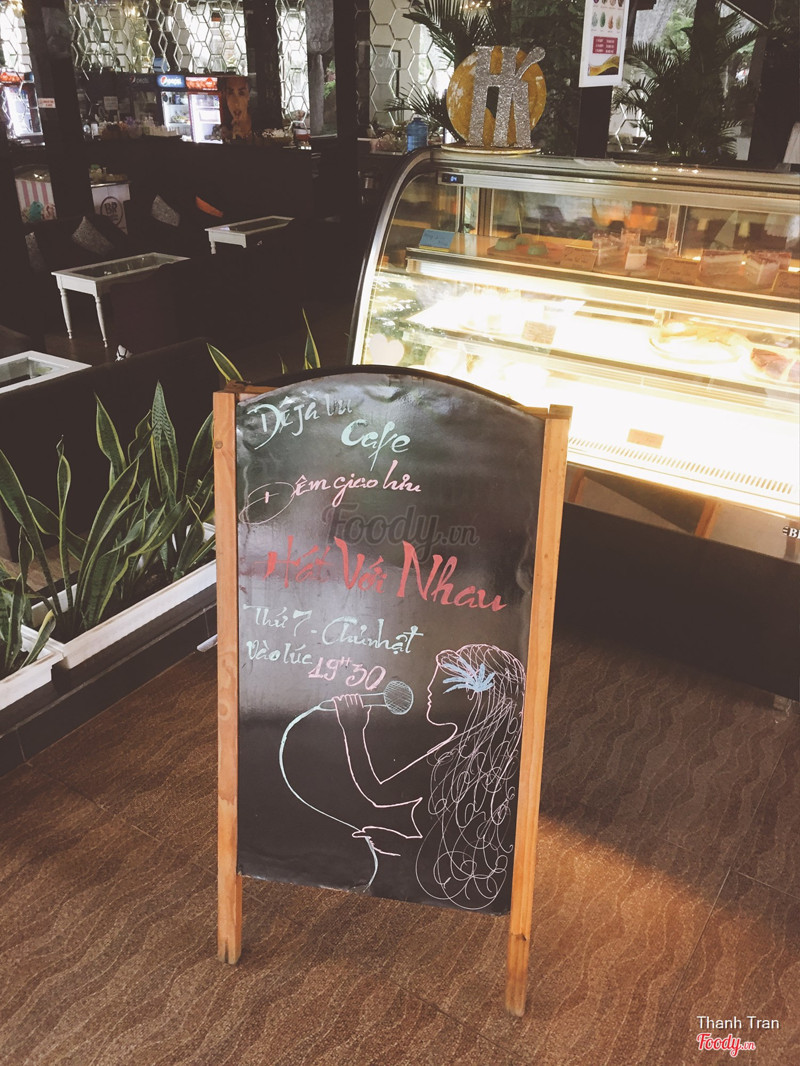 HK
Déjà vu
Cafe
Đêm giao lưu
Foody.vn
Hát Với Nhau
Thứ 7 - Chủ nhật
Vào lúc 19H30
Thanh Tran
Foody.vn